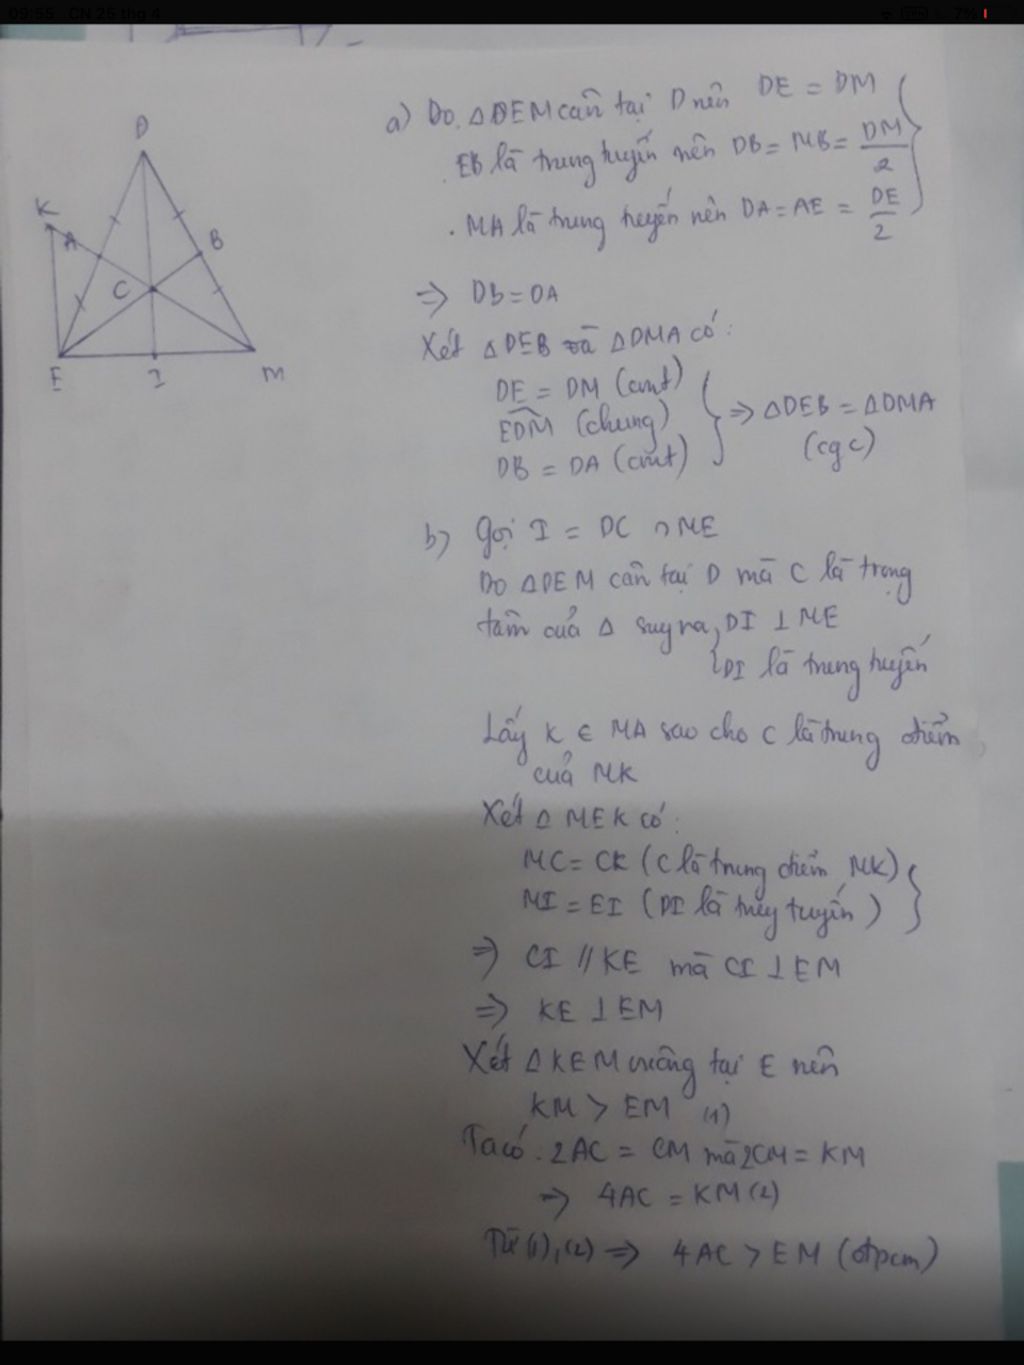 09:55 CN 25 thg 4
7%
D
K
A
B
C
E
I
M
a) Do ΔDEM cân tại D nên DE = DM
EB là trung tuyến nên DB = MB = DM/2
. MA là trung tuyến nên DA = AE = DE/2
⇒ DB = DA
Xét ΔDEB và ΔDMA có:
DE = DM (cmt)
EDM (chung)
DB = DA (cmt)
⇒ ΔDEB = ΔDMA
(cgc)
b) Gọi I = DC ∩ ME
Do ΔDEM cân tại D mà C là trọng
tâm của Δ suy ra, DI ⊥ ME
DI là trung tuyến
Lấy K ∈ MA sao cho C là trung điểm
của MK
Xét Δ MEK có:
MC = CK (C là trung điểm MK)
MI = EI (DI là tuyến)
⇒ CI // KE mà CI ⊥ EM
⇒ KE ⊥ EM
Xét ΔKEM vuông tại E nên
KM > EM (1)
Ta có . 2AC = CM mà 2CM = KM
⇒ 4AC = KM (2)
Từ (1), (2) ⇒ 4AC > EM (đpcm)